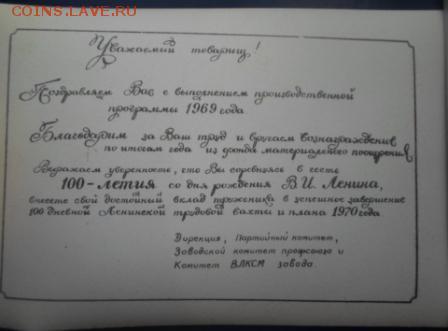 COINS.LAVE.RU
Уважаемый товарищ!
Поздравляем Вас с выполнением производственной
программы 1969 года.
Благодарим за Ваш труд и вручаем вознаграждение
по итогам года из фонда материального поощрения.
Выражаем уверенность, что Вы соревнуясь в честь
100-летия со дня рождения В.И. Ленина,
внесете свой достойный вклад труженика в успешное завершение
100 дневной Ленинской трудовой вахты и плана 1970 года.
Дирекция, Партийный комитет,
Заводской комитет профсоюза и
Комитет ВЛКСМ завода.